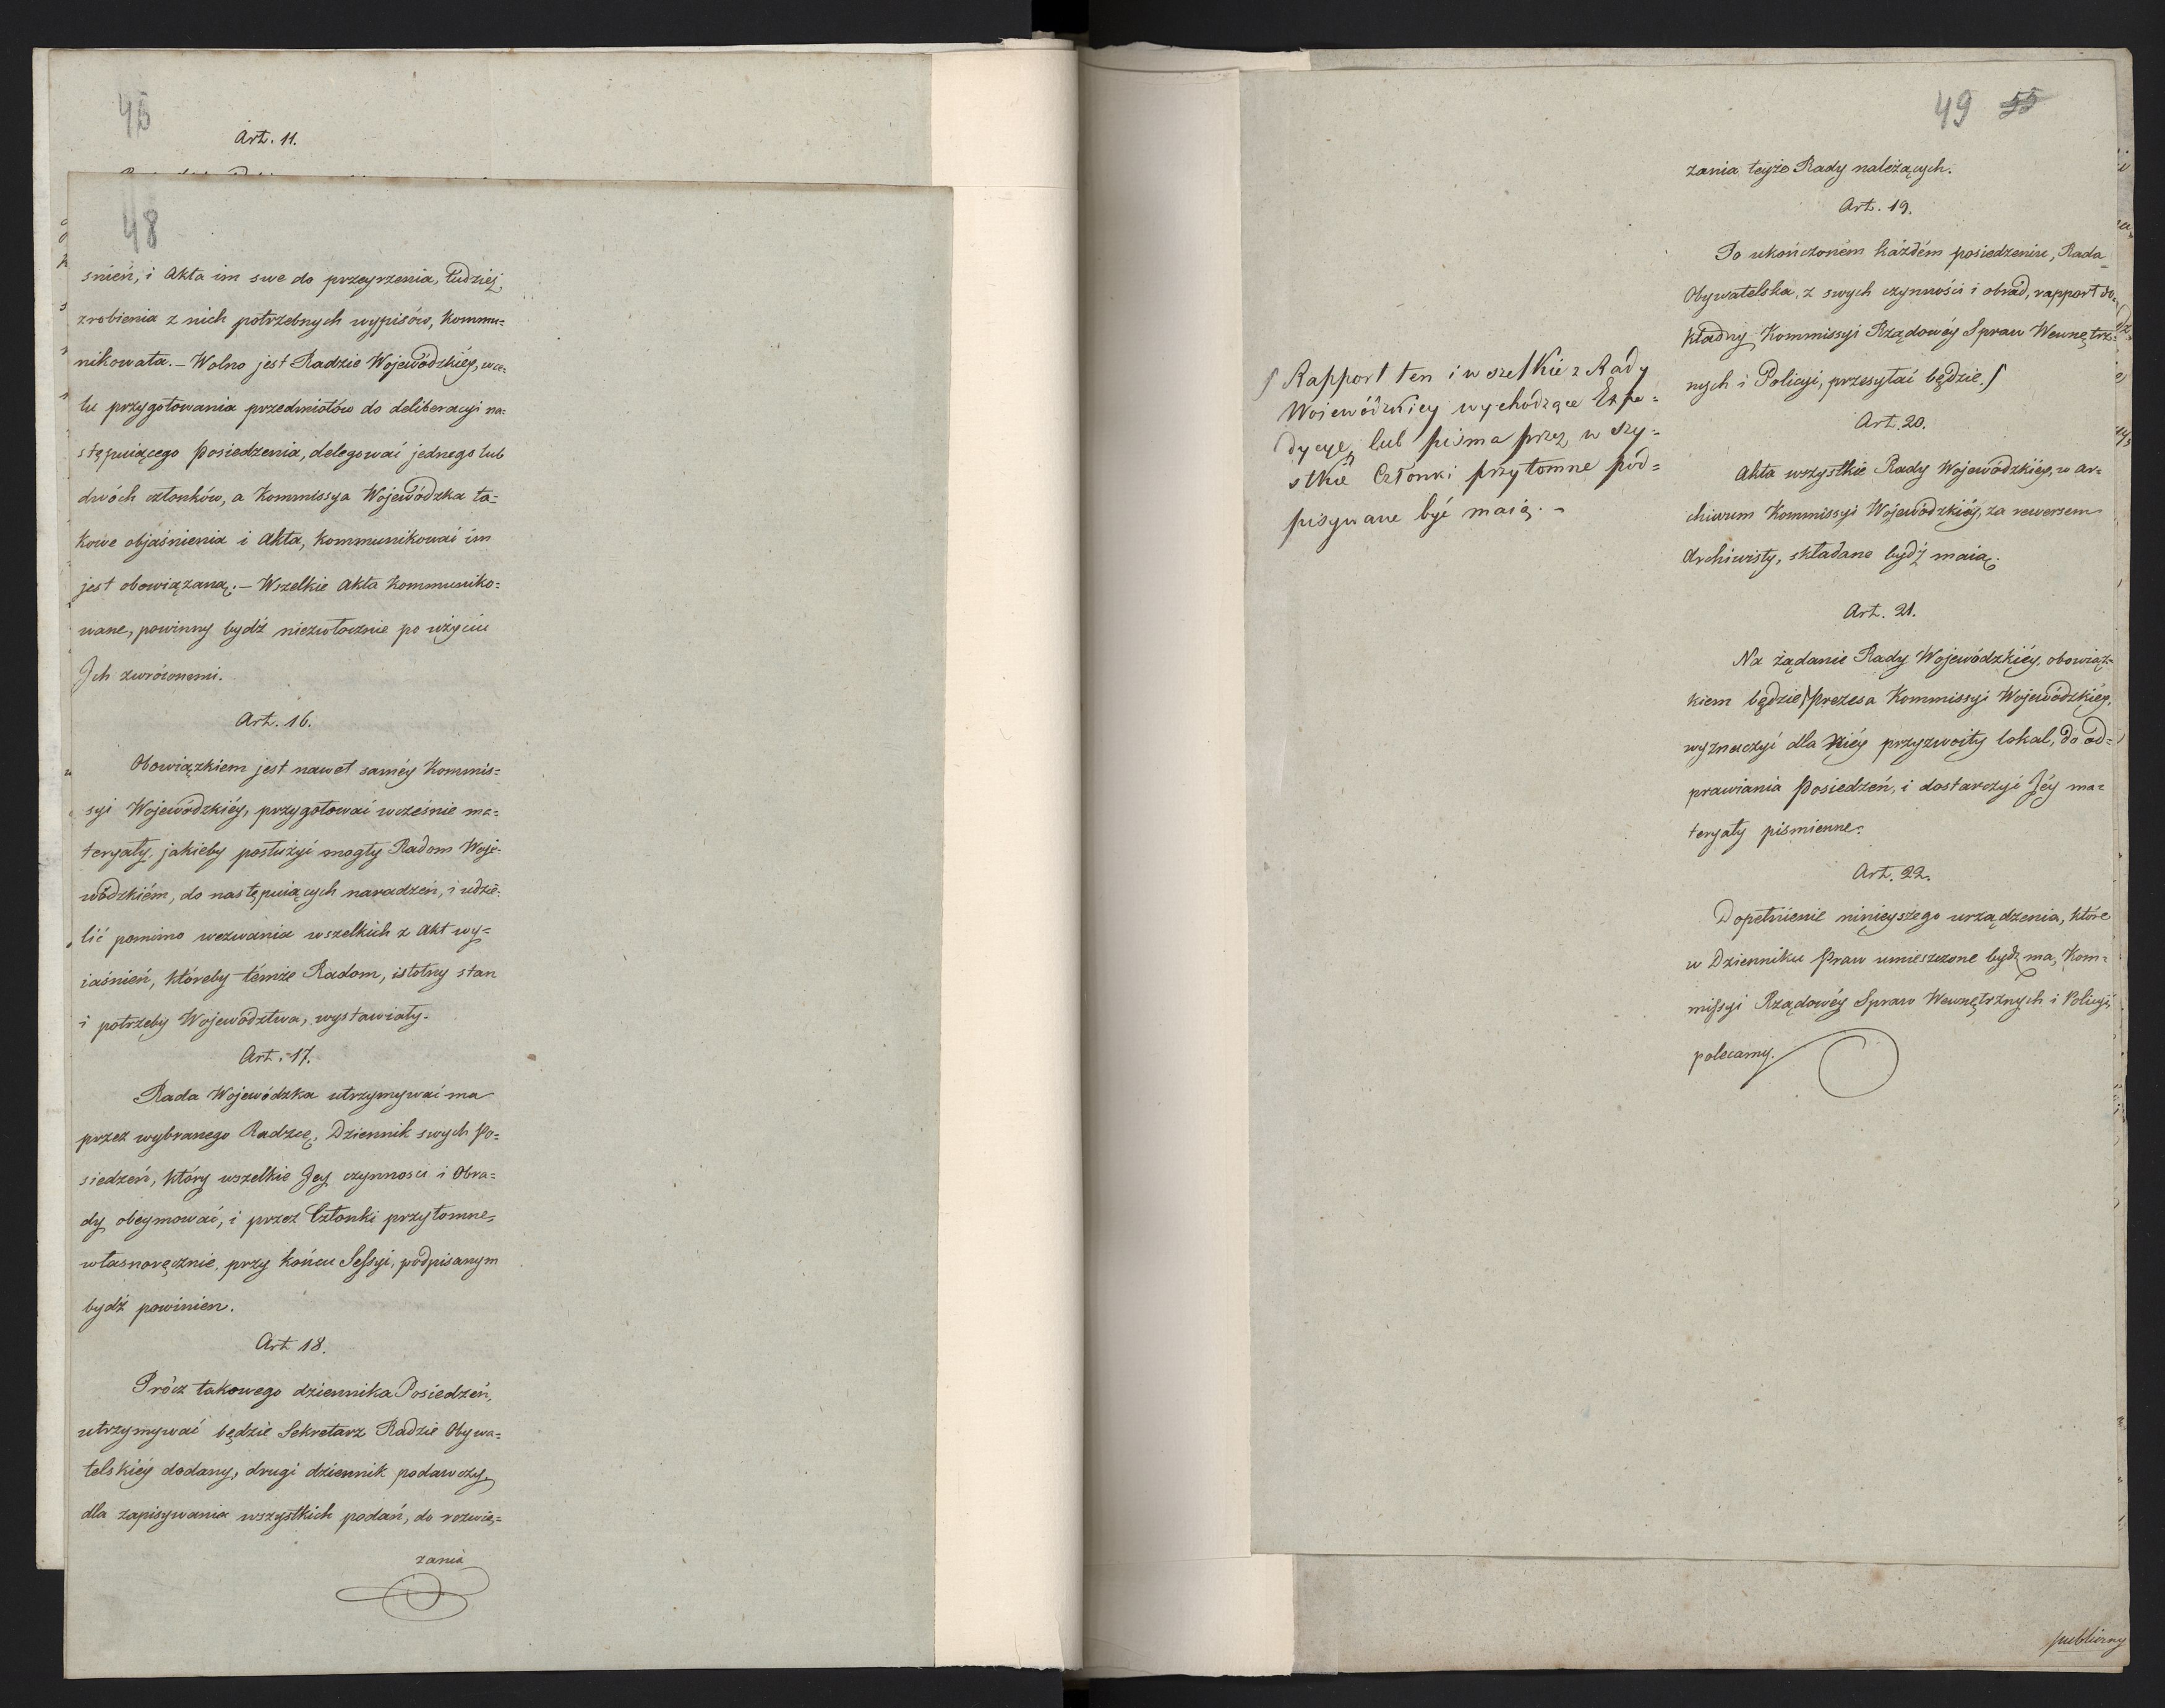 45
Art. 11.
48
śnień, i Akta im swe do przeyrzenia, tudzież,
zrobienia z nich potrzebnych wypisów, Kommu=
nikowała. – Wolno jest Radzie Wojewódzkiéy, w ce=
lu przygotowania przedmiotów do deliberacyi na=
stępuiącego Posiedzenia, delegować jednego lub
dwóch członków, a Kommissya Wojewódzka ta=
kowe objaśnienia i Akta, kommunikować im
jest obowiązaną. – Wszelkie Akta kommuniko=
wane, powinny bydź niezwłocznie po użyciu
Jch zwróconemi.
Art. 16.
Obowiązkiem jest nawet saméy Kommis=
syi Wojewódzkiéy, przygotować wcześnie ma=
teryały, jakieby posłużyć mogły Radom Woje=
wódzkiém, do następuiących naradzeń, i udzie=
lić pomimo wezwania wszelkich z Akt wy=
iaśnień, któreby témże Radom, istotny stan
i potrzeby Województwa, wystawiały.
Art. 17.
Rada Wojewódzka utrzymywać ma
przez wybranego Radzcę, Dziennik swych Po=
siedzeń, który wszelkie Jey czynności i Obra=
dy obeymować, i przez Członki przytomne,
własnoręcznie, przy końcu Sessyi, podpisanym
bydź powinien.
Art 18.
Prócz takowego dziennika Posiedzeń,
utrzymywać będzie Sekretarz Radzie Obywa=
telskiéy dodany, drugi dziennik podawczy,
dla zapisywania wszystkich podań, do rozwią=
zania
49 55
zania teyże Rady należących.
Art. 19.
Po ukończoném każdém posiedzeniu, Rada
Obywatelska, z swych czynności i obrad, rapport do=
kładny Kommissyi Rządowéy Spraw Wewnętrz=
nych i Policyi, przesyłać będzie. /
/ Rapport ten i wszelkie z Rady
Woiewódzkiey wychodzące Expe=
dycye, lub pisma przez wszy=
stkie Członki przytomne pod=
pisywane być maią. –
Art. 20.
Akta wszystkie Rady Wojewódzkiéy, w ar=
chiwum Kommissyi Wojewódzkiéy, za rewersem
Archiwisty, składane bydź maią.
Art. 21.
Na żądanie Rady Wojewódzkiéy, obowiąz=
kiem będzie Prezesa Kommissyi Wojewódzkiéy,
wyznaczyć dla Niéy przyzwoity lokal, do od=
prawiania Posiedzeń, i dostarczyć Jéy ma=
teryały piśmienne.
Art. 22.
Dopełnienie ninieyszego urządzenia, które
w Dzienniku Praw umieszczone bydź ma, Kom=
missyi Rządowéy Spraw Wewnętrznych i Policyi,
polecamy.
publiczny